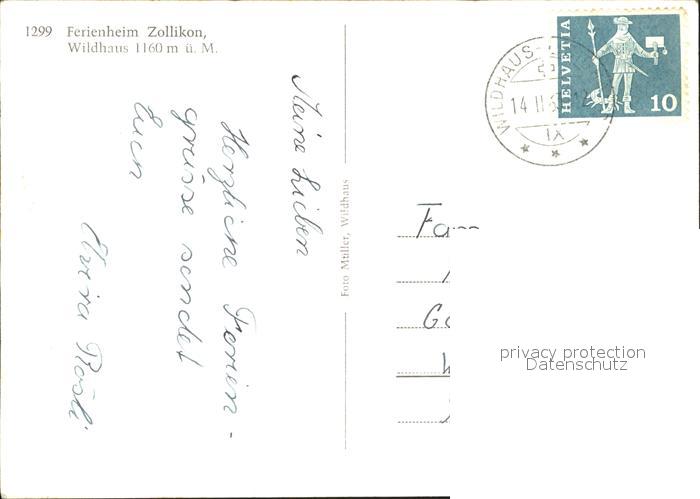 1299 Ferienheim Zollikon,
Wildhaus 1160 m ü. M.
Meine Lieben
Herzliche Ferien-
grüsse sendet
Euch
Rösli
Foto Müller, Wildhaus
WILDHAUS
14 II
IX
HELVETIA
10
Fa
privacy protection
Datenschutz